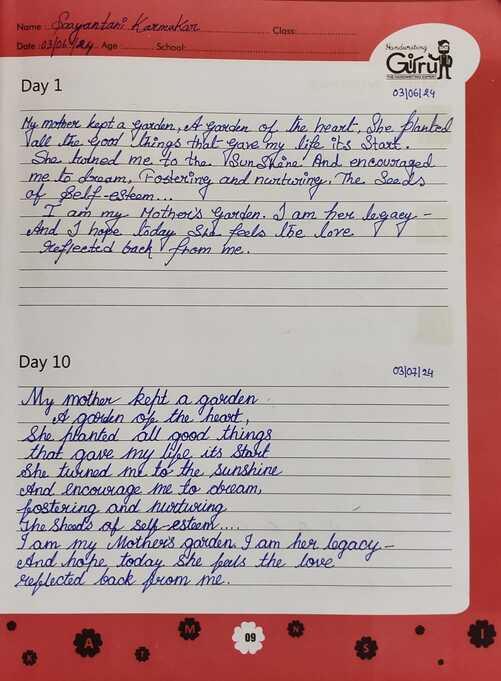 Name : Saayantani Karmakar Class:
Date : 03/06/24 Age School:
Handwriting
Guru
THE HANDWRITING EXPERT
Day 1
03/06/24
My mother kept a garden, A garden of the heart, She planted
all the good things that gave my life its start.
She turned me to the Sunshine And encouraged
me to dream, Fostering and nurturing, The Seeds
of Self-esteem...
I am my Mother's garden. I am her legacy -
And I hope today She feels the love
Reflected back from me.
Day 10
03/07/24
My mother kept a garden.
A garden of the heart,
She planted all good things
that gave my life its start
She turned me to the sunshine
And encourage me to dream,
fostering and nurturing
The Sheeds of self-esteem....
I am my Mother's garden. I am her legacy -
And hope, today She feels the love
reflected back from me.
K A T M 09 N S I